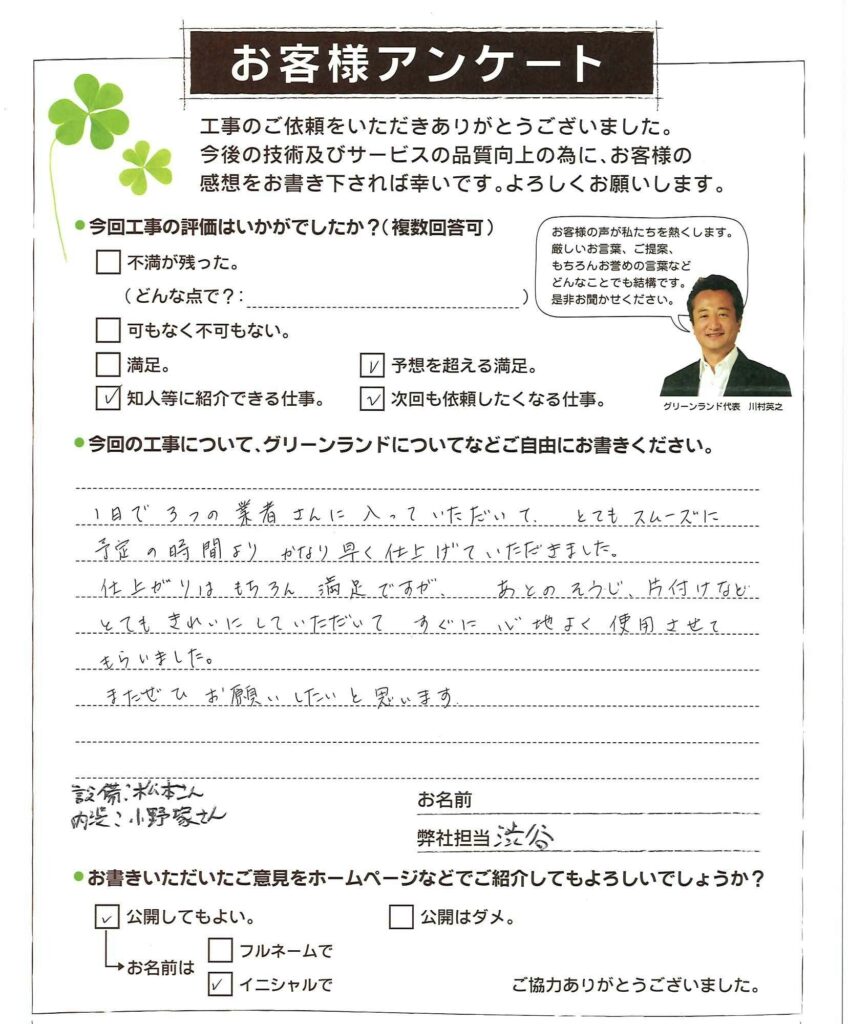 お客様アンケート
工事のご依頼をいただきありがとうございました。
今後の技術及びサービスの品質向上の為に、お客様の
感想をお書き下されば幸いです。よろしくお願いします。
●今回工事の評価はいかがでしたか？（複数回答可）
不満が残った。
（どんな点で？：　）
可もなく不可もない。
満足。
予想を超える満足。
知人等に紹介できる仕事。
次回も依頼したくなる仕事。
お客様の声が私たちを熱くします。
厳しいお言葉、ご提案、
もちろんお誉めの言葉など
どんなことでも結構です。
是非お聞かせください。
グリーンランド代表　川村英之
●今回の工事について、グリーンランドについてなどご自由にお書きください。
1日で3つの業者さんに入っていただいて、とてもスムーズに
予定の時間よりかなり早く仕上げていただきました。
仕上がりはもちろん満足ですが、あとのそうじ、片付けなど
とてもきれいにしていただいてすぐに心地よく使用させて
もらいました。
またぜひお願いしたいと思います
設備：松本さん
内装：小野塚さん
お名前
弊社担当 渋谷
●お書きいただいたご意見をホームページなどでご紹介してもよろしいでしょうか？
公開してもよい。
公開はダメ。
お名前は
フルネームで
イニシャルで
ご協力ありがとうございました。